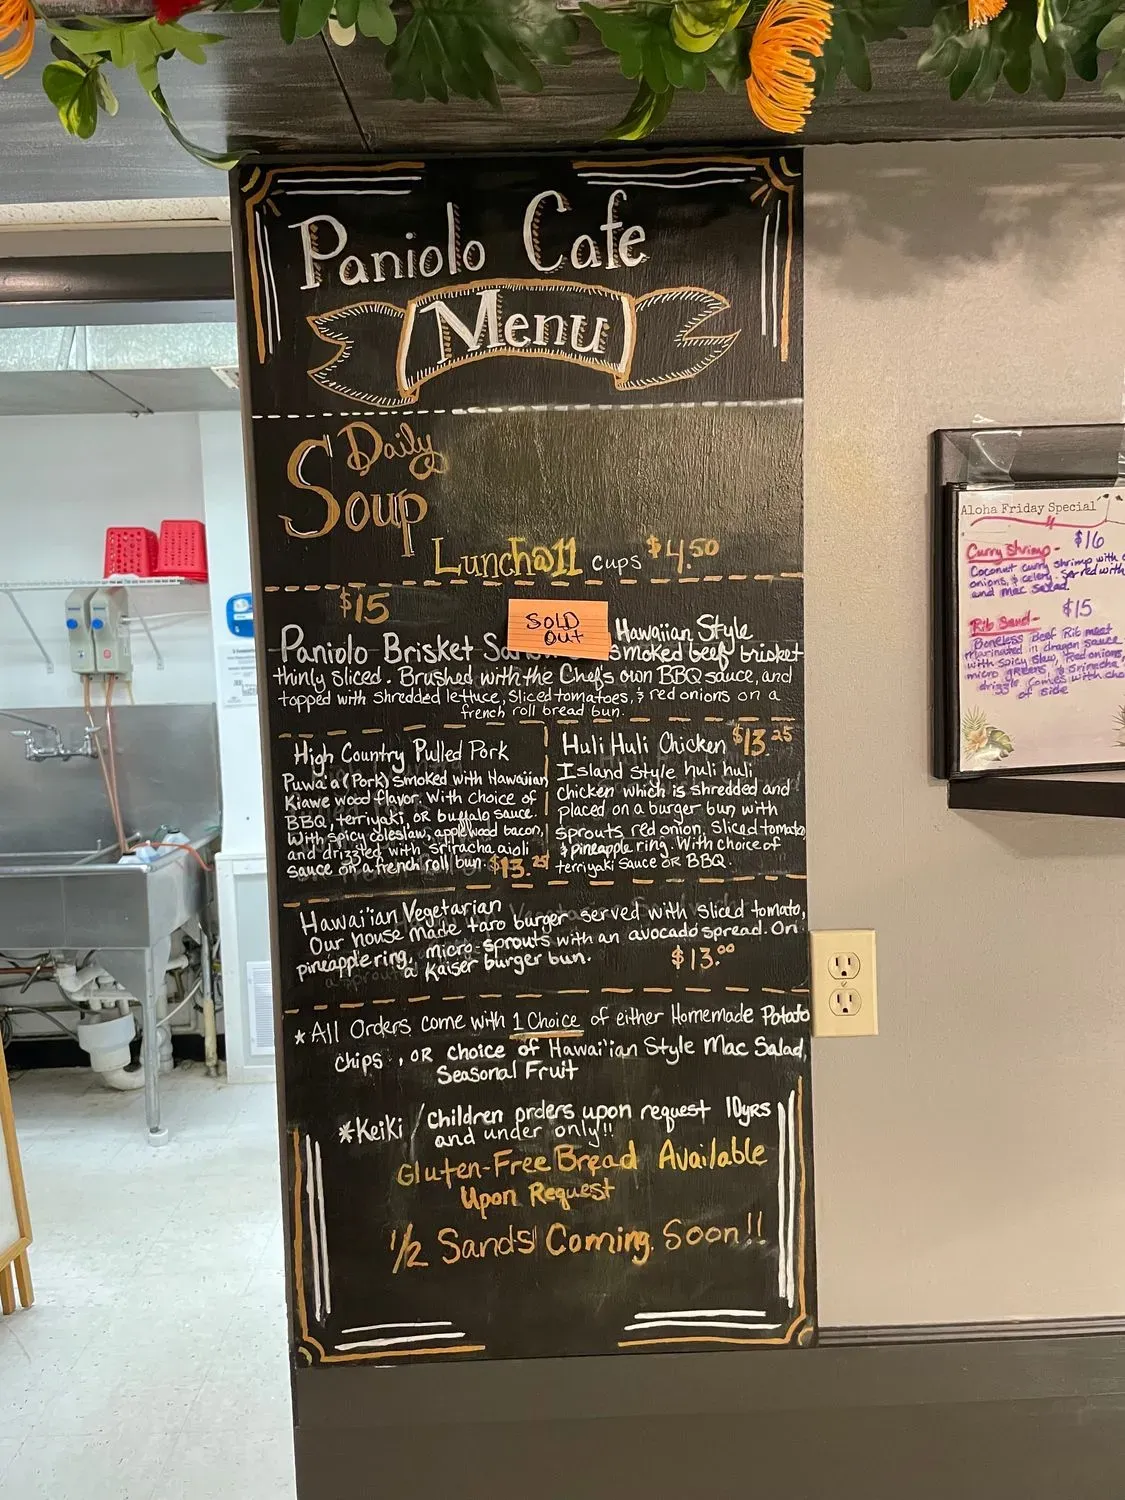 Paniolo Cafe
Menu
Daily
Soup
Lunch@11 cups $4.50
$15
SOLD
OUT
Paniolo Brisket
Hawaiian Style
smoked beef brisket
thinly sliced. Brushed with the Chef's own BBQ sauce, and
topped with shredded lettuce, sliced tomatoes, & red onions on a
french roll bread bun.
High Country Pulled Pork
Puwa'a (Pork) smoked with Hawaiian
Kiawe wood flavor. With choice of
BBQ, terriyaki, OR buffalo sauce.
With spicy coleslaw, applewood bacon,
and drizzled with sriracha aioli
sauce on a french roll bun. $13.25
Huli Huli Chicken $13.25
Island style huli huli
chicken which is shredded and
placed on a burger bun, with
sprouts red onion, sliced tomato
& pineapple ring. With choice of
terriyaki sauce OR BBQ.
Hawai'ian Vegetarian
Our house made taro burger served with sliced tomato,
pineapple ring, micro-sprouts with an avocado spread. On
a Kaiser burger bun. $13.00
*All Orders come with 1 Choice of either Homemade Potato
Chips, OR choice of Hawai'ian Style Mac Salad,
Seasonal Fruit
*Keiki / Children orders upon request 10yrs
and under only!!
Gluten-Free Bread Available
Upon Request
1/2 Sands Coming Soon!!
Aloha Friday Special
Curry Shrimp - $16
Coconut curry shrimp with
onions, & celery. Served with
and mac salad.
$15
Rib Sand -
Boneless Beef Rib meat
Marinated in dragon sauce
with spicy slaw, Red onions,
micro greens, & Sriracha
drizzle comes with cho
of side